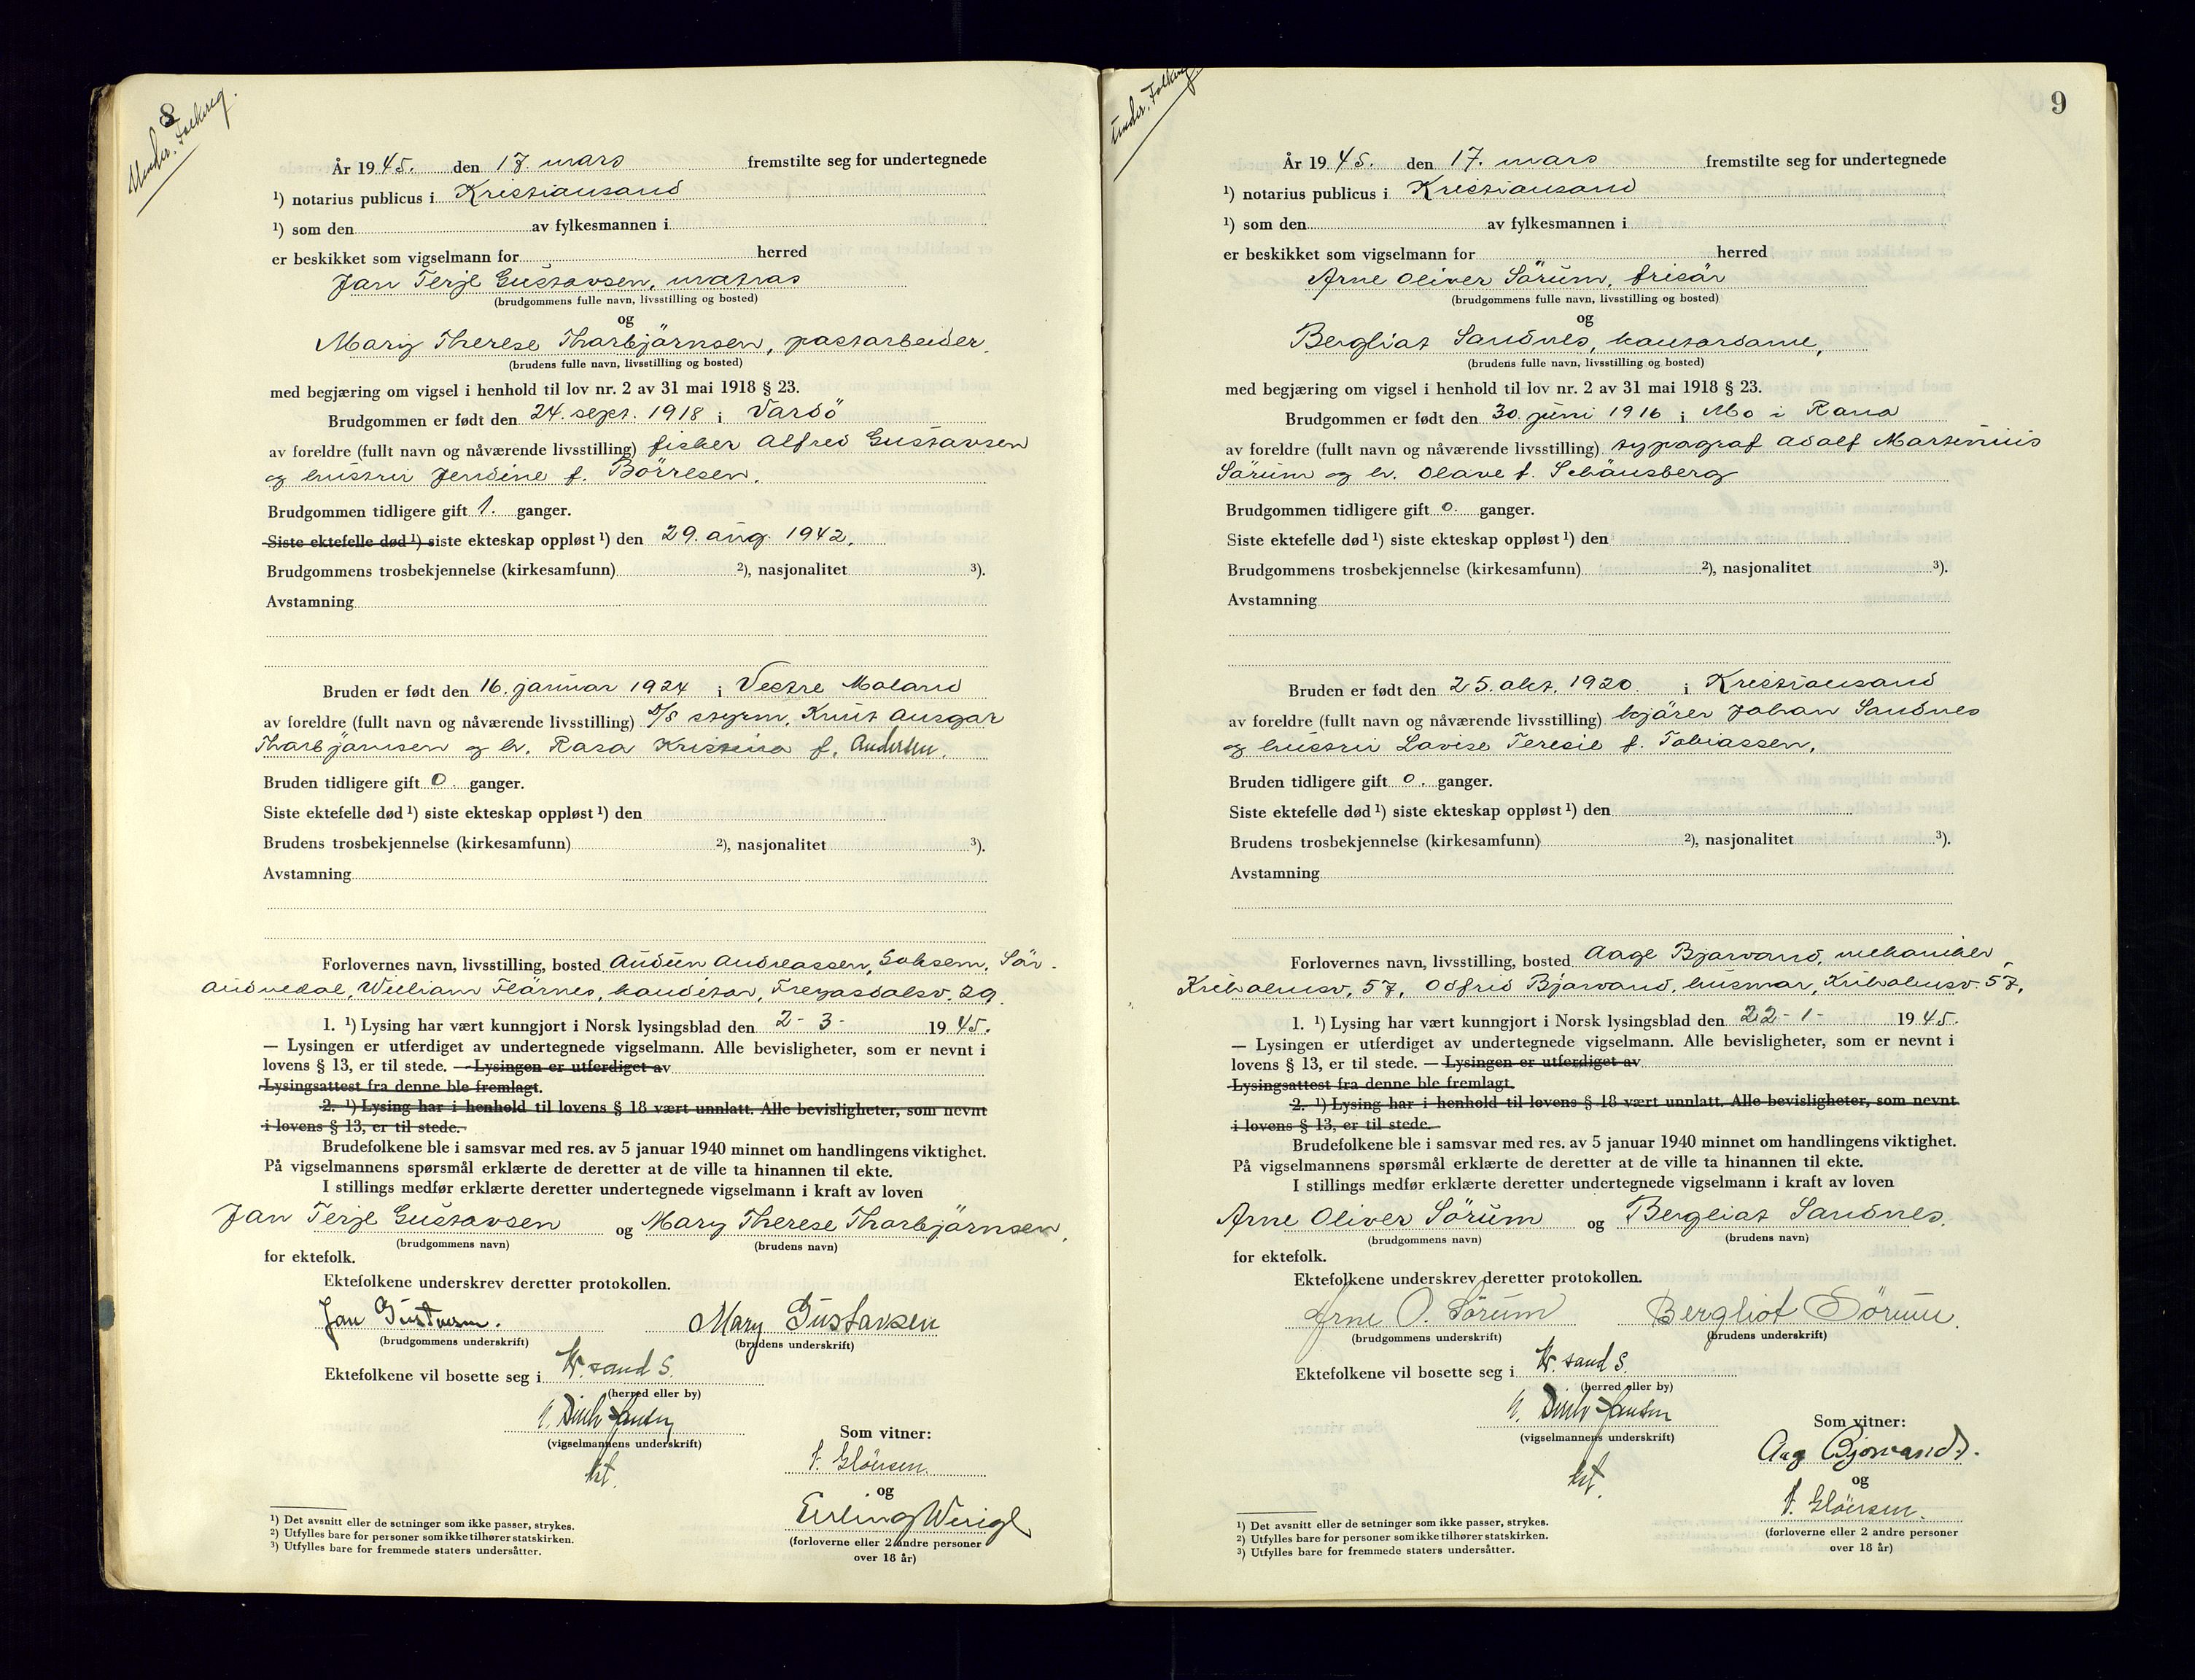 8
Under. Folkereg.
År 1945. den 17. mars fremstilte seg for undertegnede
¹) notarius publicus i Kristiansand
¹) som den av fylkesmannen i
er beskikket som vigselmann for herred
Jan Terje Gustavsen, matros
(brudgommens fulle navn, livsstilling og bosted)
og
Mary Therese Thorbjörnsen, postarbeider.
(brudens fulle navn, livsstilling og bosted)
med begjæring om vigsel i henhold til lov nr. 2 av 31 mai 1918 § 23.
Brudgommen er født den 24. sept. 1918 i Vardö
av foreldre (fullt navn og nåværende livsstilling) fisker Alfred Gustavsen
og hustru Jendine f. Börresen.
Brudgommen tidligere gift 1. ganger.
Siste ektefelle død ¹) siste ekteskap oppløst ¹) den 29. aug. 1942.
Brudgommens trosbekjennelse (kirkesamfunn) ²), nasjonalitet ³).
Avstamning
Bruden er født den 16. januar 1924 i Vestre Moland
av foreldre (fullt navn og nåværende livsstilling) d/s styrm. Knut Ansgar
Thorbjörnsen og h. Rosa Kristina f. Andersen.
Bruden tidligere gift 0 ganger.
Siste ektefelle død ¹) siste ekteskap oppløst ¹) den
Brudens trosbekjennelse (kirkesamfunn) ²), nasjonalitet ³).
Avstamning
Forlovernes navn, livsstilling, bosted Audun Andreassen, Sör-
Audnedal, William Flörnes, konditor, 29.
1. ¹) Lysing har vært kunngjort i Norsk lysingsblad den 2-3- 1945.
— Lysingen er utferdiget av undertegnede vigselmann. Alle bevisligheter, som er nevnt i
lovens § 13, er til stede. — Lysingen er utferdiget av
Lysingsattest fra denne ble fremlagt.
2. ¹) Lysing har i henhold til lovens § 18 vært unnlatt. Alle bevisligheter, som nevnt
i lovens § 13, er til stede.
Brudefolkene ble i samsvar med res. av 5 januar 1940 minnet om handlingens viktighet.
På vigselmannens spørsmål erklærte de deretter at de ville ta hinannen til ekte.
I stillings medfør erklærte deretter undertegnede vigselmann i kraft av loven
Jan Terje Gustavsen og Mary Therese Thorbjörnsen.
(brudgommens navn) (brudens navn)
for ektefolk.
Ektefolkene underskrev deretter protokollen.
Jan Gustavsen. Mary Gustavsen
(brudgommens underskrift) (brudens underskrift)
Ektefolkene vil bosette seg i Kr.sand S.
(herred eller by)
(vigselmannens underskrift)
Som vitner:
og
Erling
(forloverne eller 2 andre personer
over 18 år)
¹) Det avsnitt eller de setninger som ikke passer, strykes.
²) Utfylles bare for personer som ikke tilhører statskirken.
³) Utfylles bare for fremmede staters undersåtter.
9
Under. Folkereg.
År 1945. den 17. mars fremstilte seg for undertegnede
¹) notarius publicus i Kristiansand
¹) som den av fylkesmannen i
er beskikket som vigselmann for herred
Arne Oliver Sörum, frisör
(brudgommens fulle navn, livsstilling og bosted)
og
Bergliot Sandnes, kontordame,
(brudens fulle navn, livsstilling og bosted)
med begjæring om vigsel i henhold til lov nr. 2 av 31 mai 1918 § 23.
Brudgommen er født den 30. juni 1916 i Mo i Rana
av foreldre (fullt navn og nåværende livsstilling) typograf Adolf Martinius
Sörum og h. Olave f. Schönsberg
Brudgommen tidligere gift 0. ganger.
Siste ektefelle død ¹) siste ekteskap oppløst ¹) den
Brudgommens trosbekjennelse (kirkesamfunn) ²), nasjonalitet ³).
Avstamning
Bruden er født den 25. okt. 1920. i Kristiansand
av foreldre (fullt navn og nåværende livsstilling) kjörer Johan Sandnes
og hustru Lovise Teresie f. Tobiassen.
Bruden tidligere gift 0. ganger.
Siste ektefelle død ¹) siste ekteskap oppløst ¹) den
Brudens trosbekjennelse (kirkesamfunn) ²), nasjonalitet ³).
Avstamning
Forlovernes navn, livsstilling, bosted Aage Bjorvand, mekaniker
Kriholmsv. 57, Odfrid Bjorvand, husmor, Kriholmsv. 57,
1. ¹) Lysing har vært kunngjort i Norsk lysingsblad den 22-1- 1945.
— Lysingen er utferdiget av undertegnede vigselmann. Alle bevisligheter, som er nevnt i
lovens § 13, er til stede. — Lysingen er utferdiget av
Lysingsattest fra denne ble fremlagt.
2. ¹) Lysing har i henhold til lovens § 18 vært unnlatt. Alle bevisligheter, som nevnt
i lovens § 13, er til stede.
Brudefolkene ble i samsvar med res. av 5 januar 1940 minnet om handlingens viktighet.
På vigselmannens spørsmål erklærte de deretter at de ville ta hinannen til ekte.
I stillings medfør erklærte deretter undertegnede vigselmann i kraft av loven
Arne Oliver Sörum og Bergliot Sandnes.
(brudgommens navn) (brudens navn)
for ektefolk.
Ektefolkene underskrev deretter protokollen.
Arne O. Sörum Bergliot Sörum.
(brudgommens underskrift) (brudens underskrift)
Ektefolkene vil bosette seg i Kr.sand S.
(herred eller by)
(vigselmannens underskrift)
Som vitner:
Aag Bjorvand.
og
(forloverne eller 2 andre personer
over 18 år)
¹) Det avsnitt eller de setninger som ikke passer, strykes.
²) Utfylles bare for personer som ikke tilhører statskirken.
³) Utfylles bare for fremmede staters undersåtter.